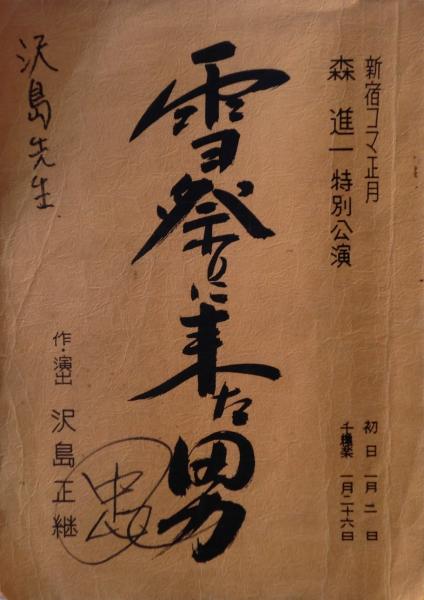 新宿コマ正月
森進一特別公演
初日 一月二日
千穐楽 一月二十六日
雪祭りに来た男
作・演出 沢島正継
忠
沢島先生